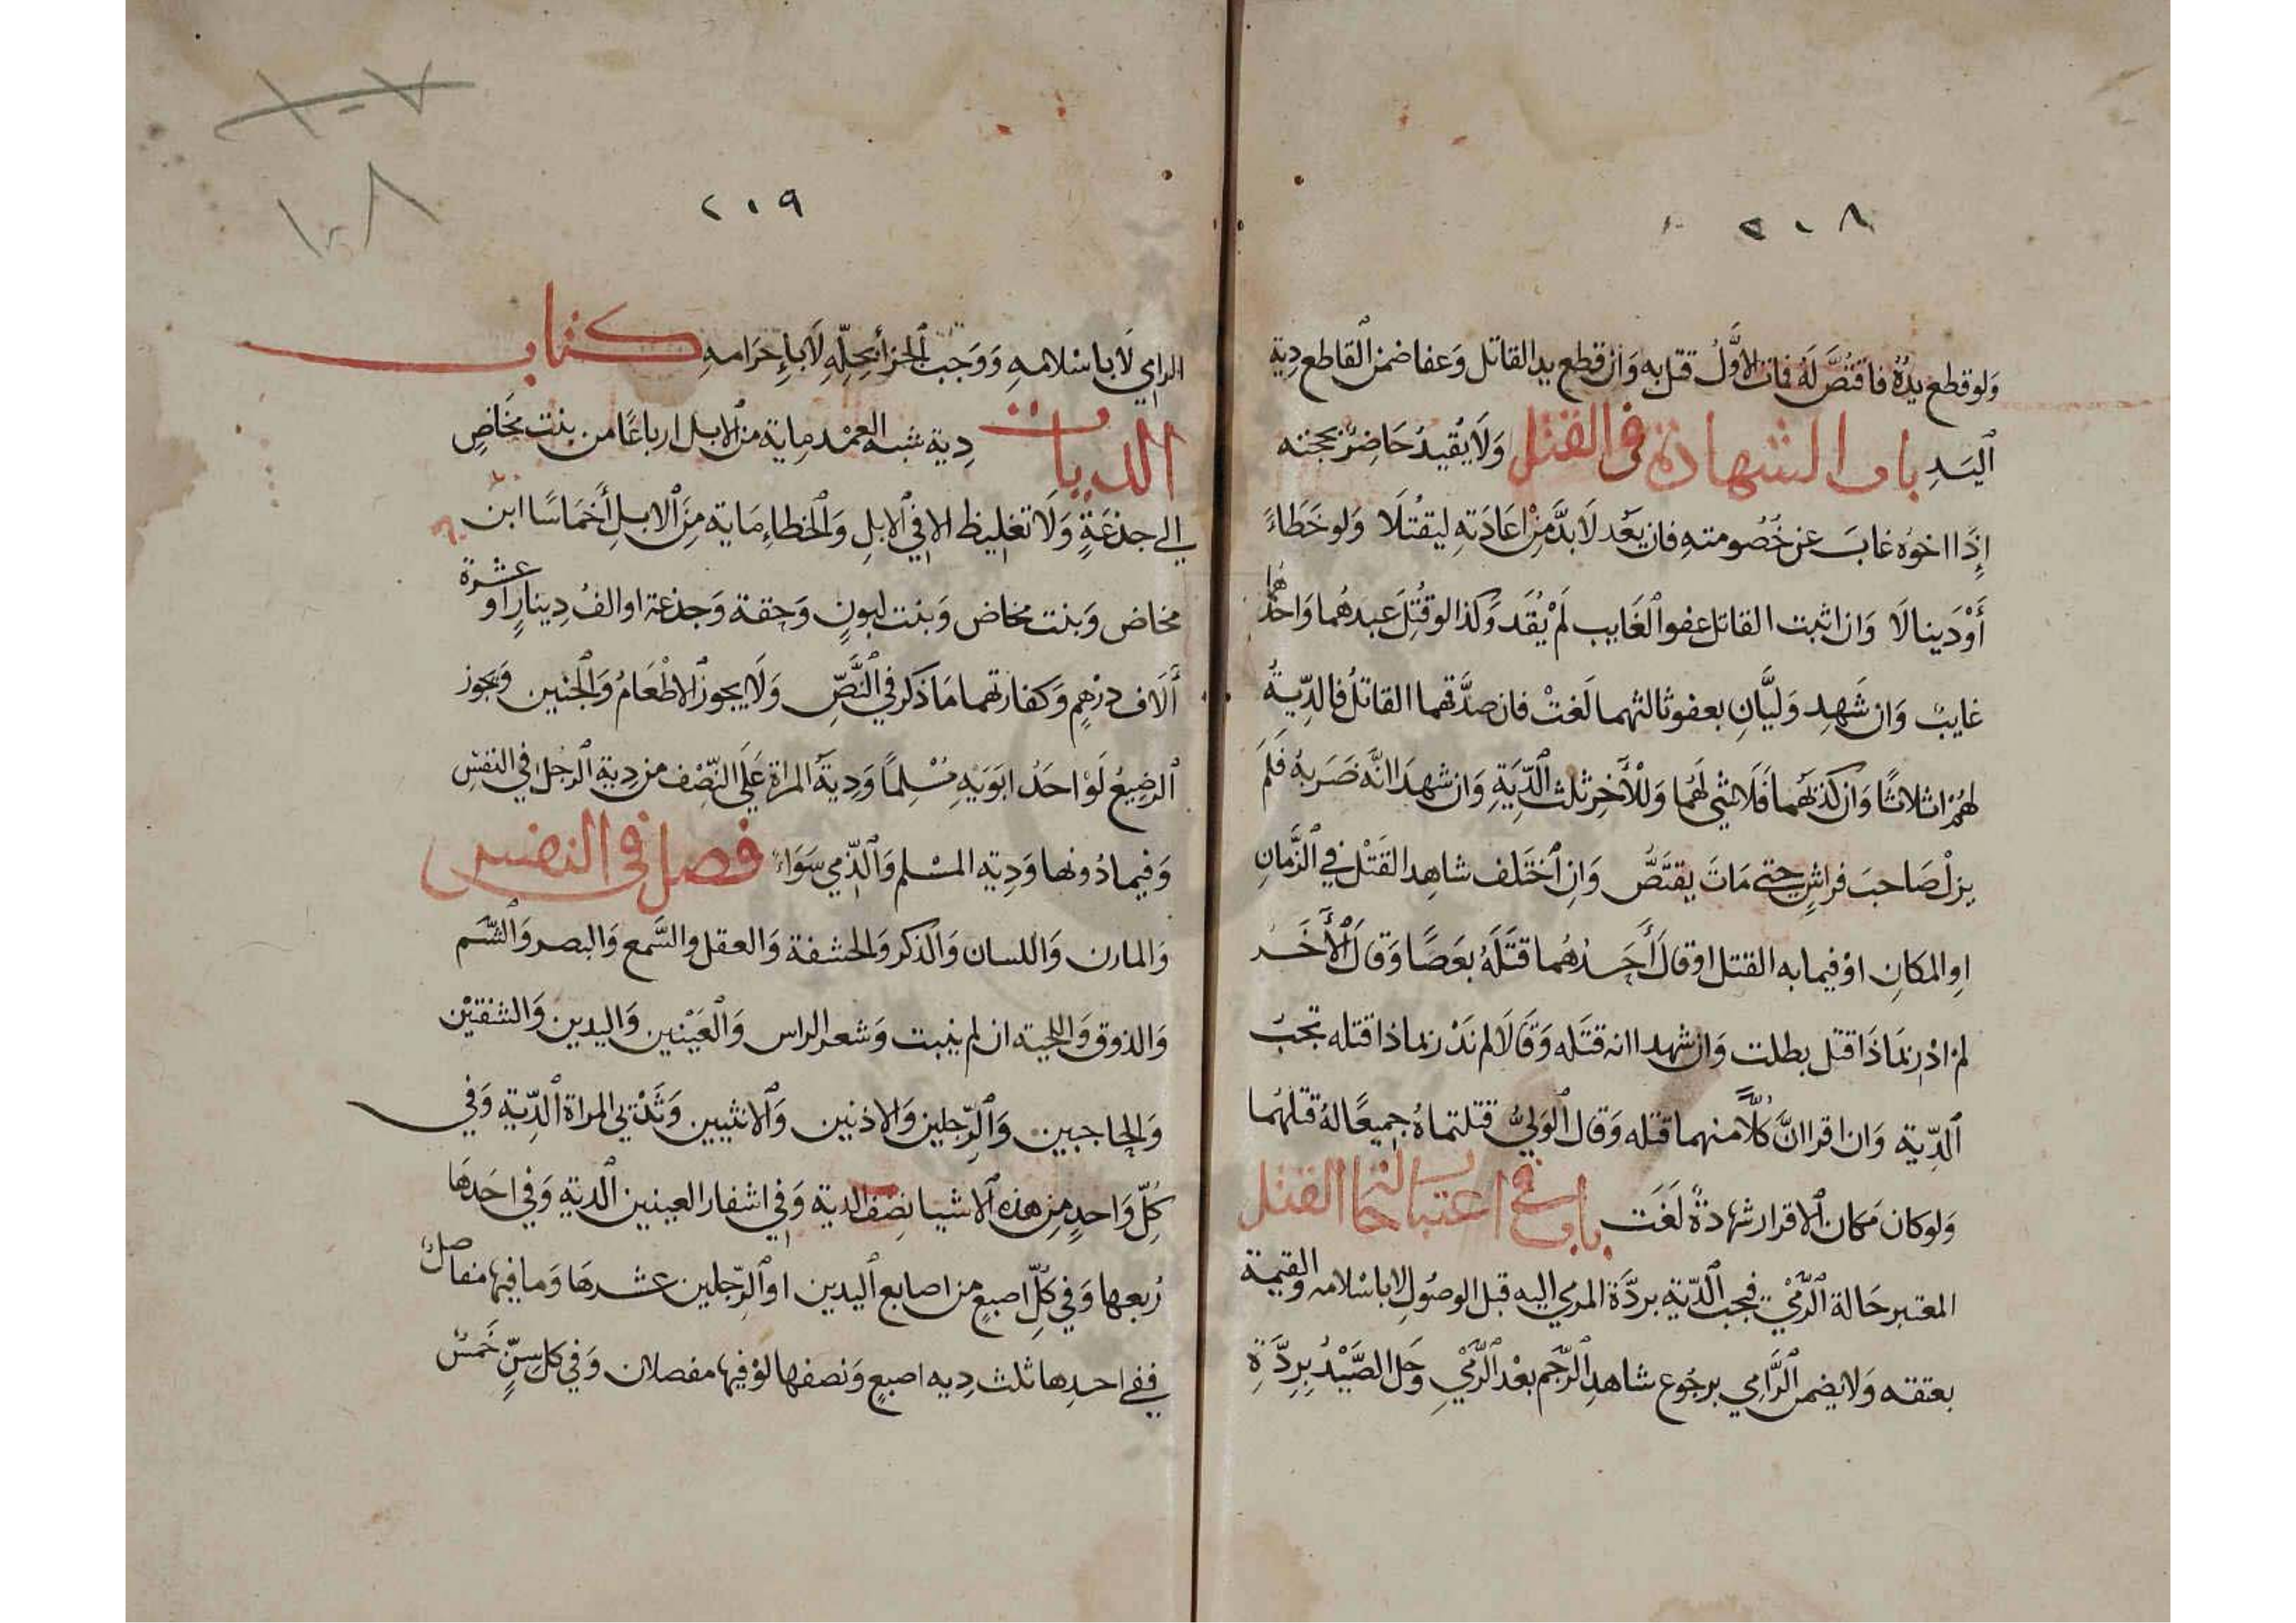 ٢١٨
ولو قطع يده فاقتص له فمات الاول قتل به وان قطع يد القاتل وعفا ضمن القاطع دية
اليد باب الشهادة في القتل ولا يقيد حاضر بحجته
إذا اخوه غاب عن خصومته فان يعد لا بد من اعادته ليقتلا ولو خطاء
أو دينا لا وان اثبت القاتل عفو الغايب لم يقد وكذا لو قتل عبدهما واحدهما
غايب وان شهد وليان بعفو ثالثهما لغت فان صدقهما القاتل فالدية
لهم اثلاثا وان كذبهما فلا شي لهما وللآخر ثلث الدية وان شهدا انه ضربه فلم
يزل صاحب فراش حتى مات يقتص وان اختلف شاهد القتل في الزمان
او المكان او فيما به القتل او قال احدهما قتله بعصا وقال الأخر
لم ادر بماذا قتل بطلت وان شهدا انه قتله وقالا لم ندر بماذا قتله تجب
الدية وان اقرا ان كلا منهما قتله وقال الولي قتلتماه جميعا له قتلهما
ولو كان مكان الاقرار شهادة لغت باب في اعتبار حالة القتل
المعتبر حالة الرمي فتجب الدية بردة المرمي اليه قبل الوصول لا باسلامه والقيمة
بعتقه ولا يضمن الرامي برجوع شاهد الرجم بعد الرمي وحل الصيد بردة
٢١٩
١٠٨
الرامي لا باسلامه ووجب الجزا بحله لا بإحرامه كتاب
الديات دية شبه العمد ماية من الابل ارباعا من بنت مخاض
الي جذعة ولا تغليظ الا في الابل والخطاء ماية من الابل أخماسا ابن
مخاض وبنت مخاض وبنت لبون وحقة وجذعة او الف دينار او عشرة
ألاف درهم وكفارتهما ما ذكر في النص ولا يجوز الاطعام والجنين ويجوز
الرضيع لو احد ابويه مسلما ودية المراة علي النصف من دية الرجل في النفس
وفيما دونها ودية المسلم والذمي سواء فصل في النفس
والمارن واللسان والذكر والحشفة والعقل والسمع والبصر والشم
والذوق واللحية ان لم ينبت وشعر الراس والعينين واليدين والشفتين
والحاجبين والرجلين والاذنين والانثيين وثديي المراة الدية وفي
كل واحد من هذه الاشيا نصف الدية وفي اشفار العينين الدية وفي احدها
ربعها وفي كل اصبع من اصابع اليدين او الرجلين عشرها وما فيها مفاصل
ففي احدها ثلث دية اصبع ونصفها لو فيها مفصلان وفي كل سن خمس